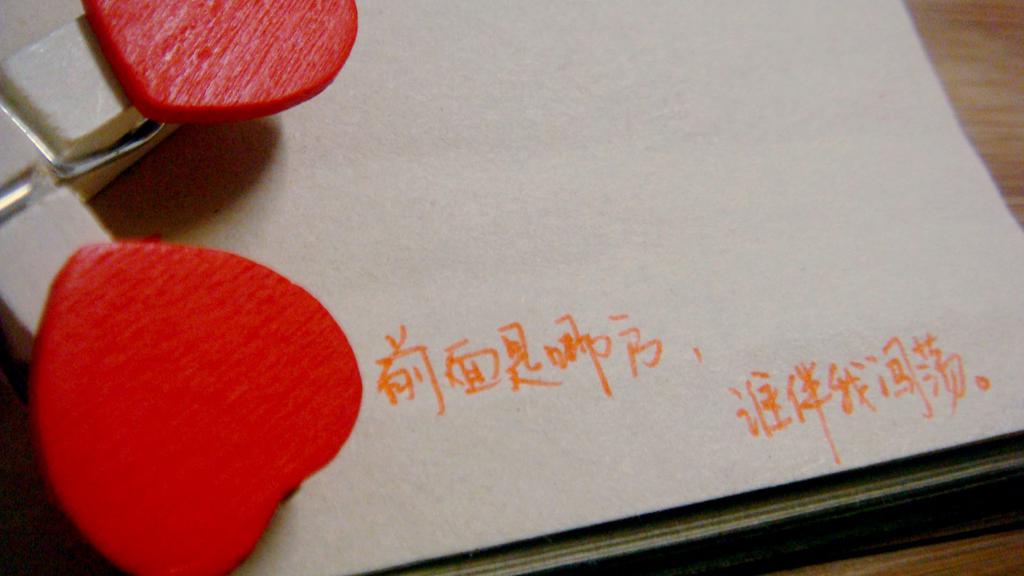 前面是哪方,
谁伴我闯荡。